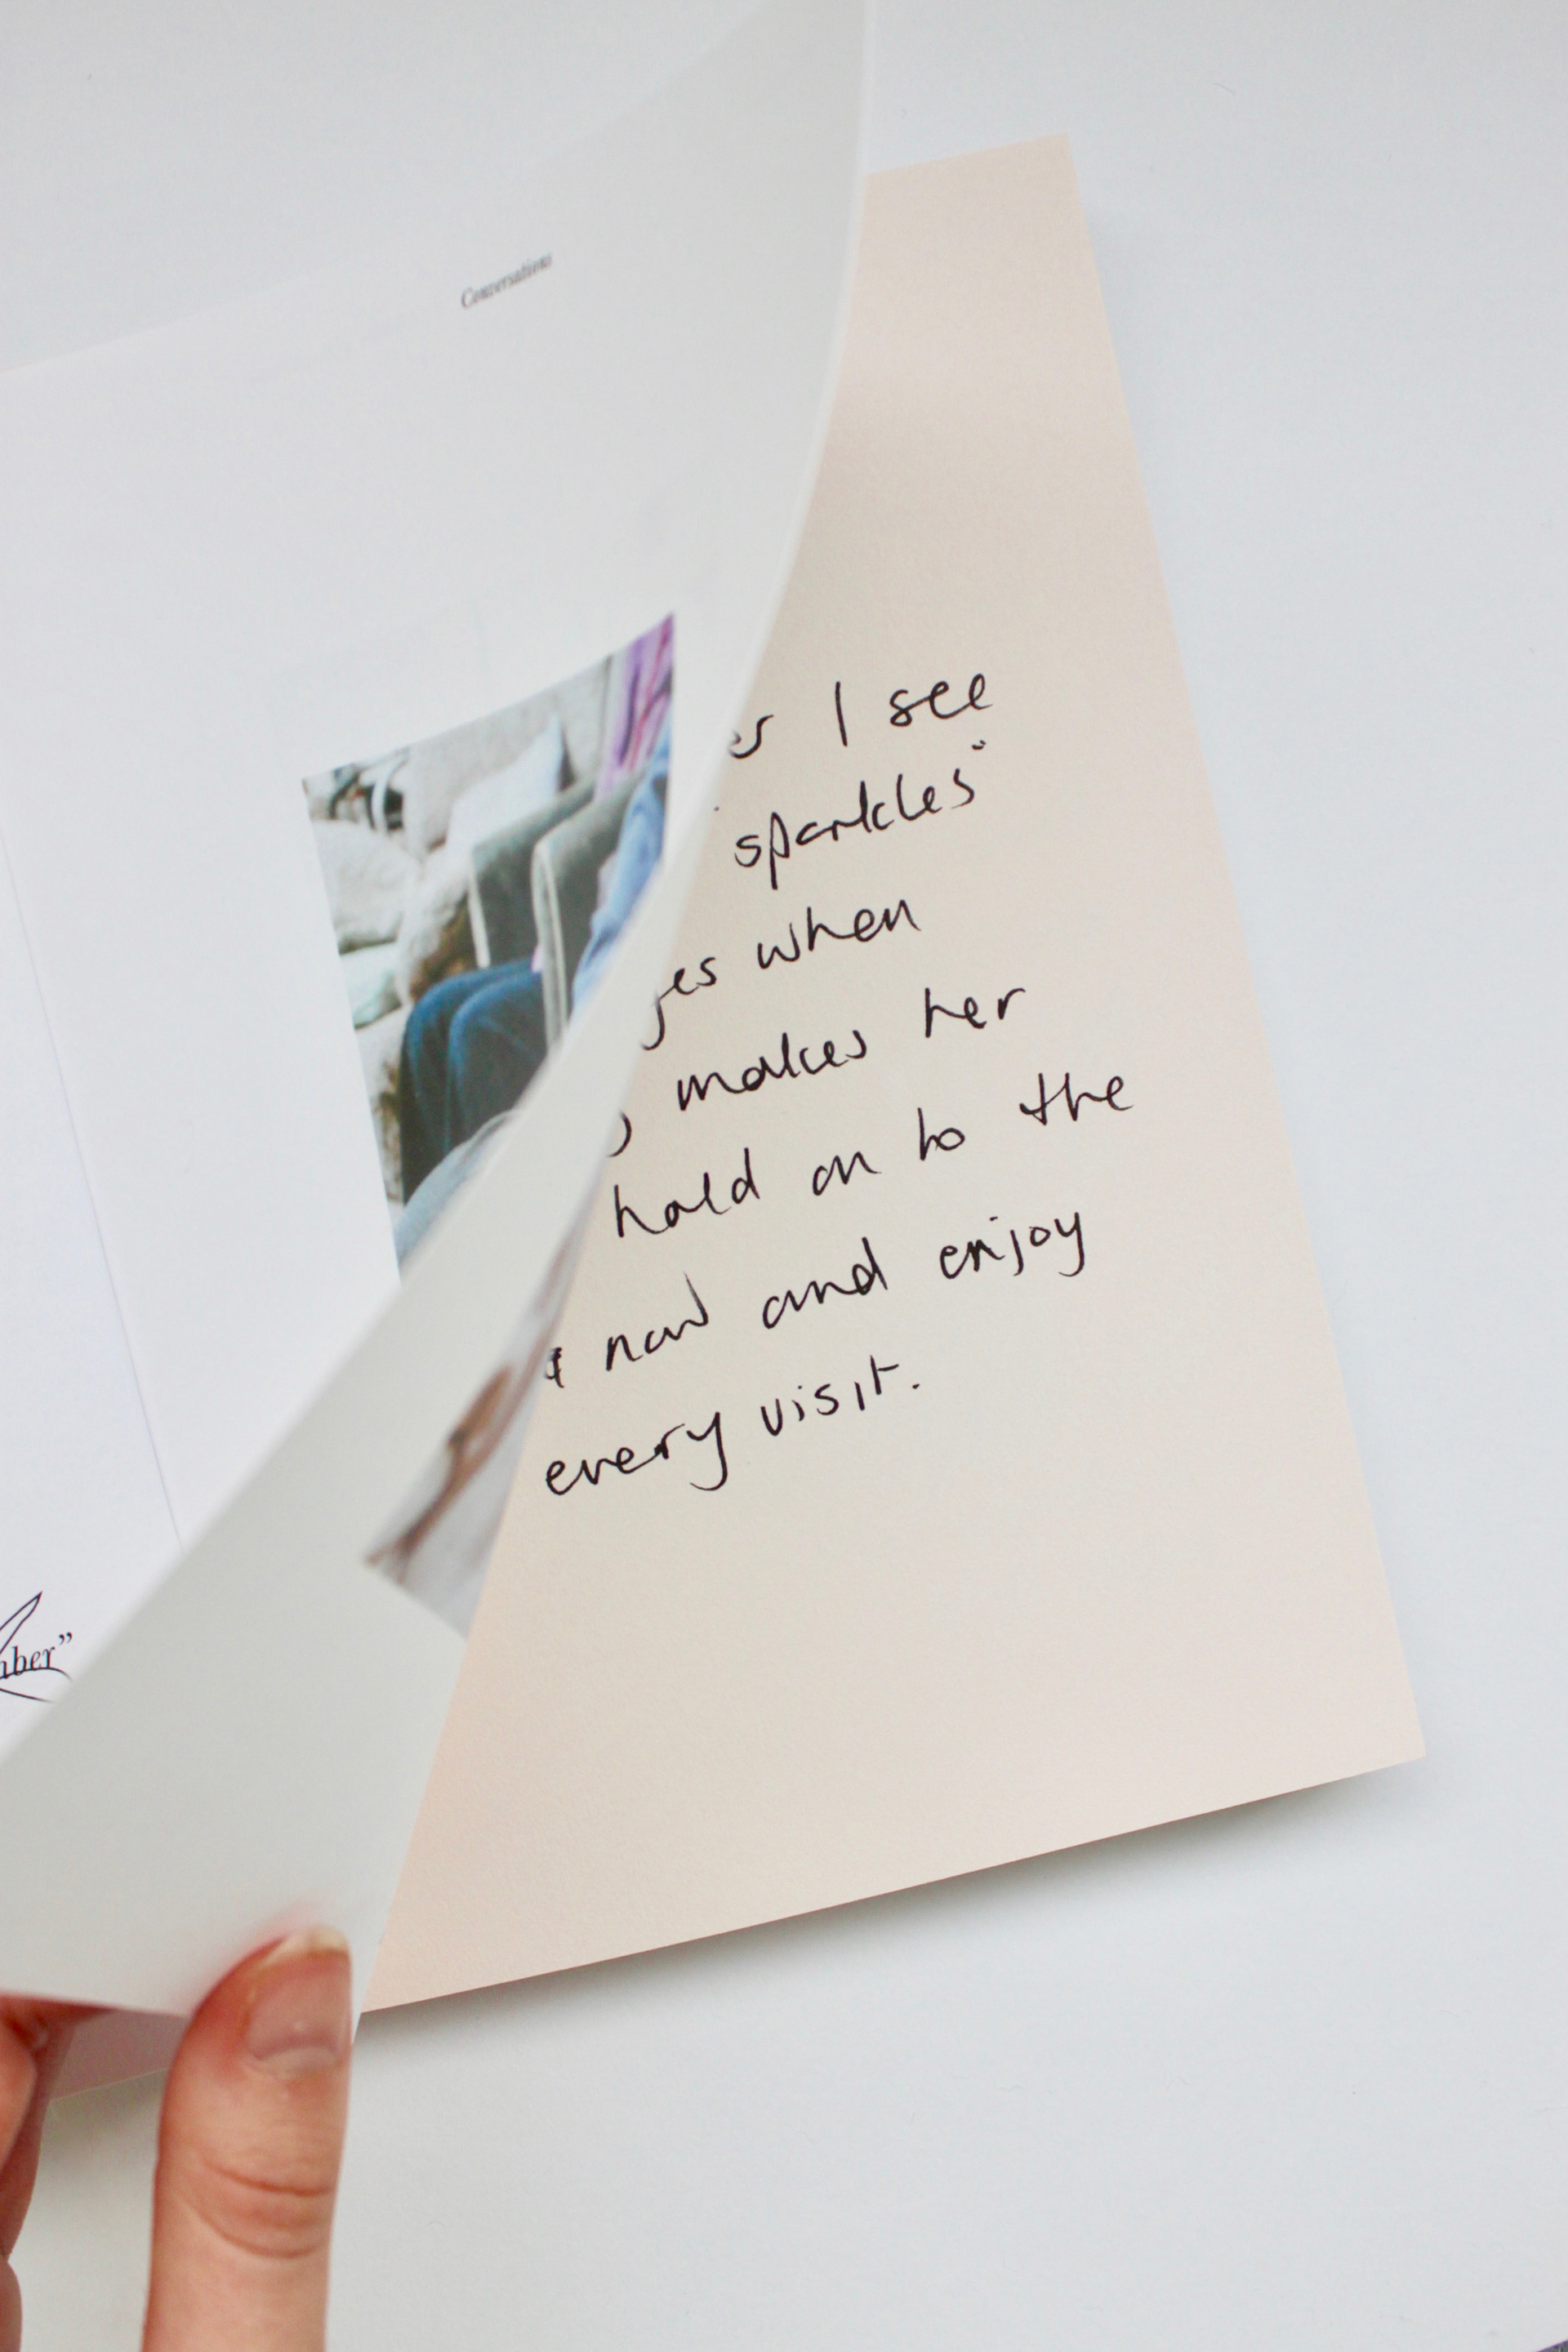 Conversations
I see
sparkles"
when
makes her
hold on to the
now and enjoy
every visit.